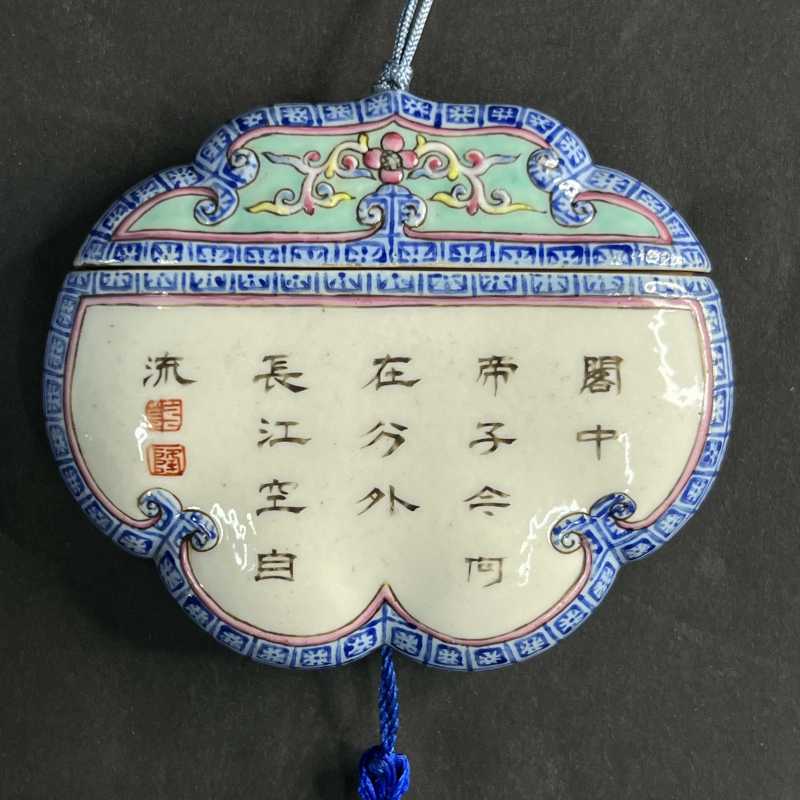 閣中
帝子今何
在分外
長江空自
流
乾
隆